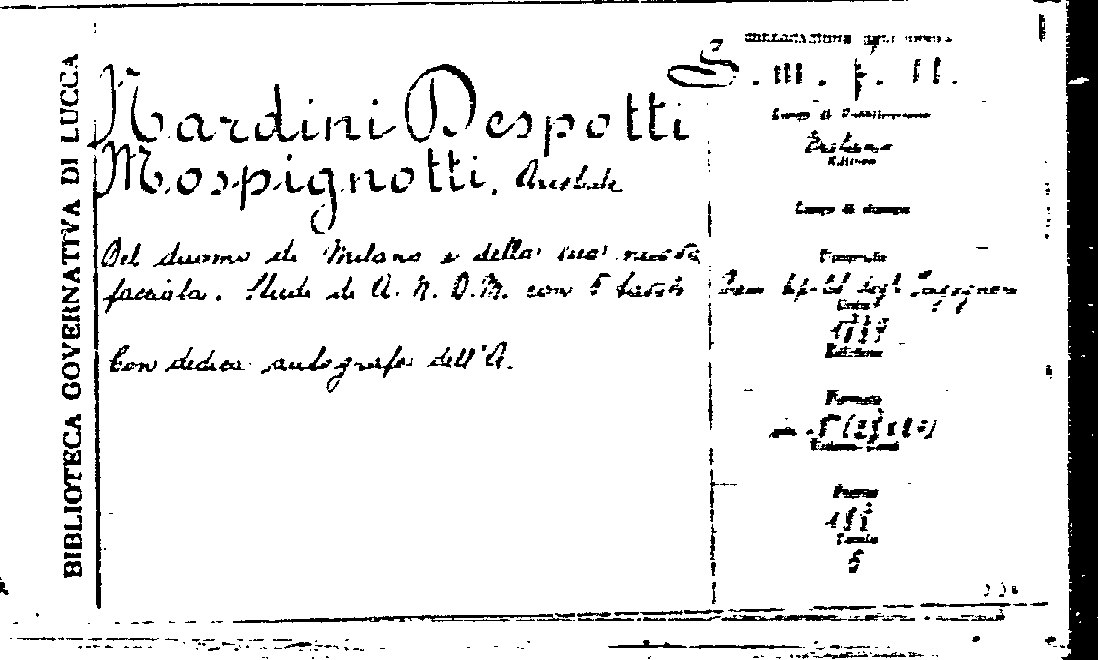 BIBLIOTECA GOVERNATIVA DI LUCCA
COLLOCAZIONE DELL'OPERA
S. III. F. 11.
Nardini Despotti
Mospignotti, Aristide
Del duomo di Milano e della sua nuova
facciata. Studi di A. N. D. M. con 5 tavole
Con dedica autografa dell'A.
Luogo di Pubblicazione
Editore
Luogo di stampa
Tipografia
tip-lit degli Ingegneri
Data
Edizione
Formato
Pagine
Tavole
5